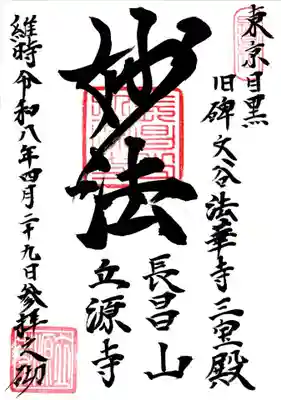 東京目黒
旧碑文谷法華寺三宝殿
妙法
長昌山
立源寺
維時令和八年四月二十九日参拝之御